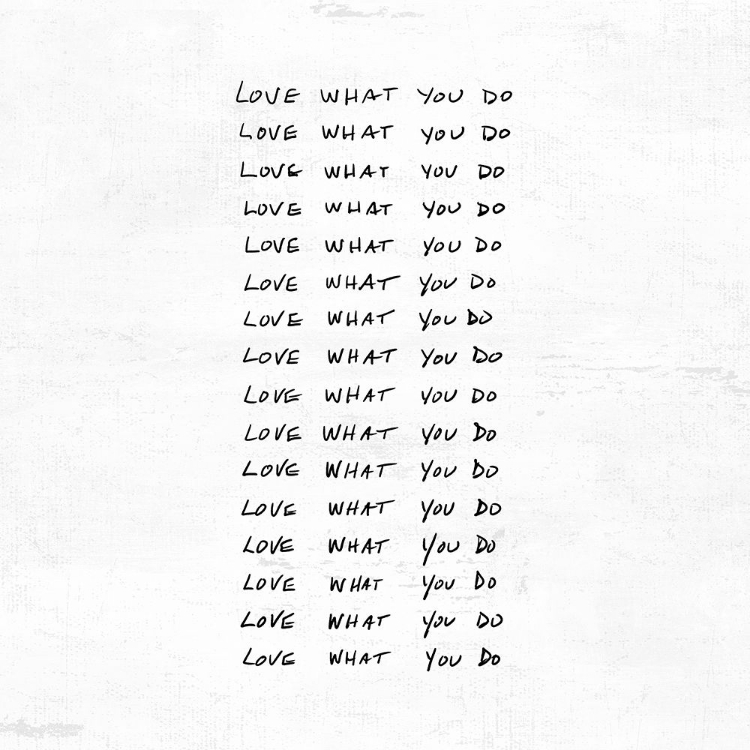 LOVE WHAT YOU DO
LOVE WHAT YOU DO
LOVE WHAT YOU DO
LOVE WHAT YOU DO
LOVE WHAT YOU DO
LOVE WHAT YOU DO
LOVE WHAT YOU DO
LOVE WHAT YOU DO
LOVE WHAT YOU DO
LOVE WHAT YOU DO
LOVE WHAT YOU DO
LOVE WHAT YOU DO
LOVE WHAT YOU DO
LOVE WHAT YOU DO
LOVE WHAT YOU DO
LOVE WHAT YOU DO